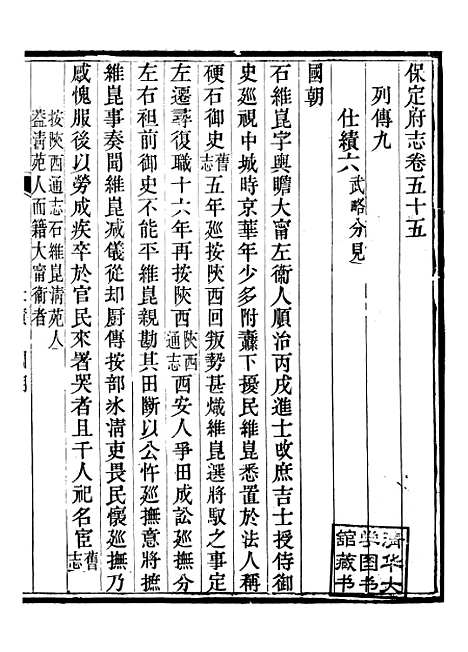 保定府志卷五十五
列傳九
仕績六 武略分見
國朝
石維崑字輿瞻大甯左衞人順治丙戌進士改庶吉士授侍御
史廵視中城時京華年少多附纛下擾民維崑悉置於法人稱
硬石御史舊志五年廵按陝西回叛勢甚熾維崑選將馭之事定
左遷尋復職十六年再按陝西陝西通志西安人爭田成訟廵撫分
左右袒前御史不能平維崑親勘其田斷以公忤廵撫意將摭
維崑事奏聞維崑減儀從却厨傳按部冰清吏畏民懷廵撫乃
感愧服後以勞成疾卒於官民來署哭者且千人祀名宦舊志
按陝西通志石維崑淸苑人
葢淸苑人而籍大甯衞者
清华大
学图书
馆藏书